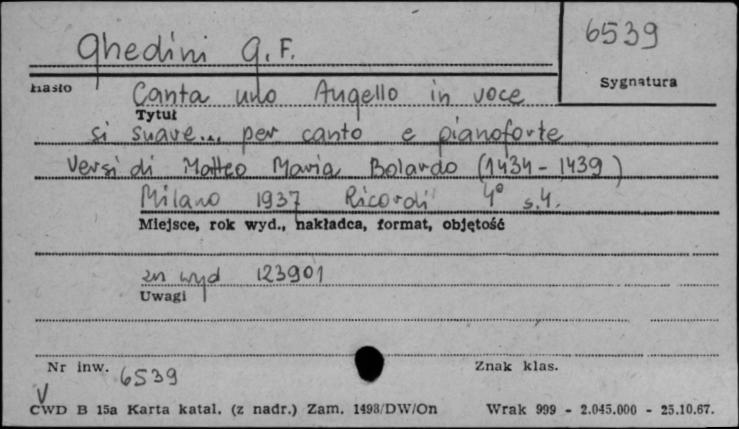 Ghedini G. F.
6539
Hasło
Sygnatura
Canta uno Augello in voce
Tytuł
si suave... per canto e pianoforte
Versi di Matteo Maria Bolardo (1434 - 1439)
Milano 1937 Ricordi 4° s.4.
Miejsce, rok wyd., nakładca, format, objętość
zn wyd 123901
Uwagi
Nr inw. 6539
Znak klas.
V
CWD B 15a Karta katal. (z nadr.) Zam. 1493/DW/On Wrak 999 - 2.045.000 - 25.10.67.